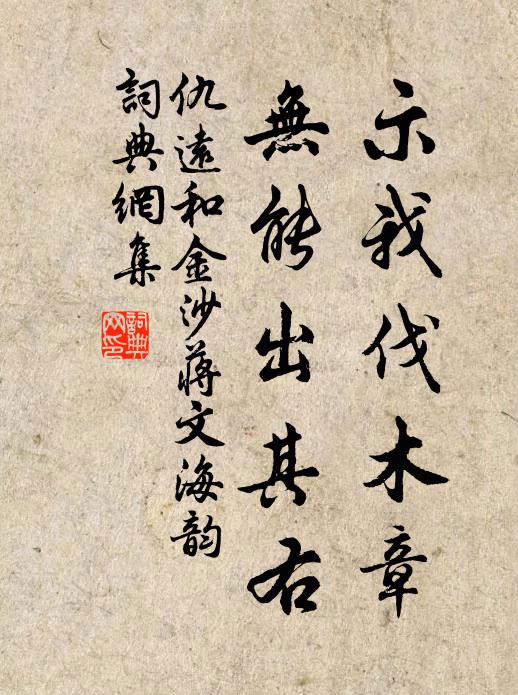 示我伐木章
無能出其右
仇遠和金沙蔣文海韵
詞典網集
詞典
网印